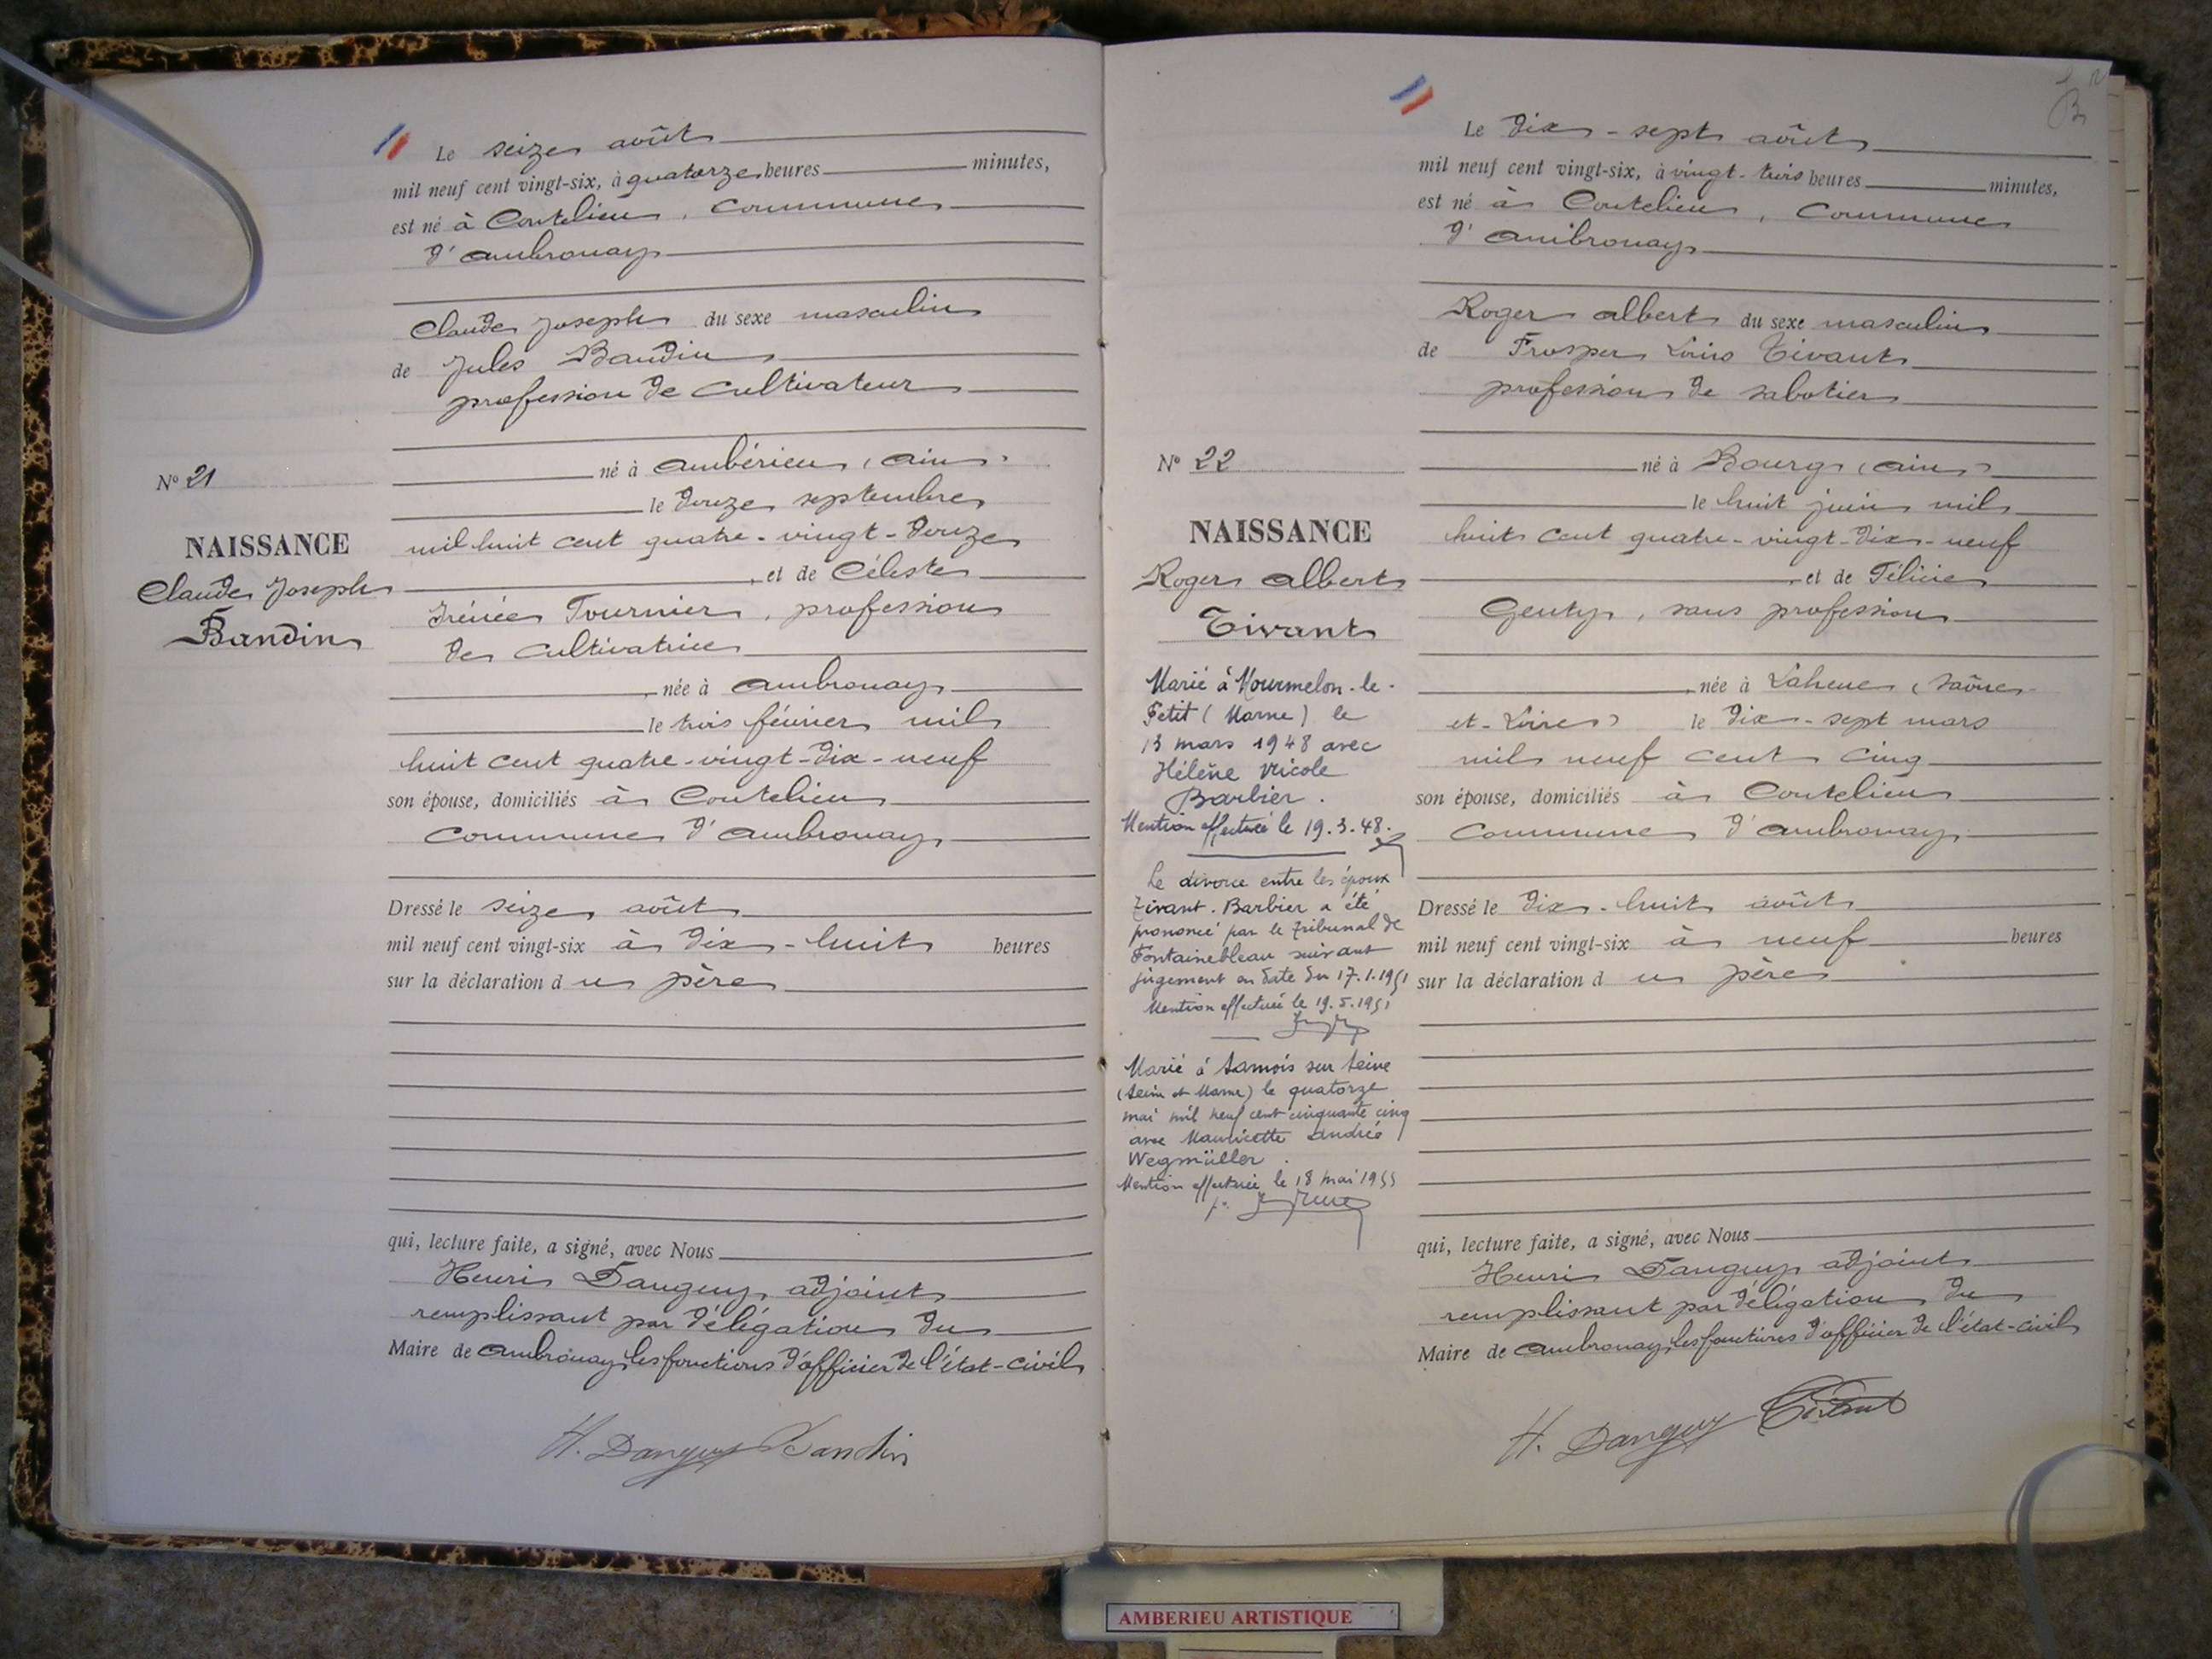 Le seize août
mil neuf cent vingt-six, à quatorze heures minutes,
est né à Coutelieu, commune
d'Ambronay
Claude Joseph du sexe masculin
de Jules Baudin
profession de cultivateur
né à Ambérieu (Ain)
le douze septembre
mil huit cent quatre-vingt-douze
et de Céleste
Irénée Tournier, profession
de cultivatrice
née à Ambronay
le trois février mil
huit cent quatre-vingt-dix-neuf
son épouse, domiciliés à Coutelieu
commune d'Ambronay
Dressé le seize août
mil neuf cent vingt-six à dix-huit heures
sur la déclaration du père
qui, lecture faite, a signé, avec Nous
Henri Danguy, adjoint
remplissant par délégation du
Maire de Ambronay, les fonctions d'officier de l'état-civil
H. Danguy Baudin
N° 21
NAISSANCE
Claude Joseph
Baudin
Le dix-sept août
mil neuf cent vingt-six, à vingt-trois heures minutes,
est né à Coutelieu, commune
d'Ambronay
Roger Albert du sexe masculin
de Prosper Louis Tivant
profession de sabotier
né à Bourg (Ain)
le huit juin mil
huit cent quatre-vingt-dix-neuf
et de Félicie
Genty, sans profession
née à (Saône-
et-Loire) le dix-sept mars
mil neuf cent cinq
son épouse, domiciliés à Coutelieu
commune d'Ambronay
Dressé le dix-huit août
mil neuf cent vingt-six à neuf heures
sur la déclaration du père
qui, lecture faite, a signé, avec Nous
Henri Danguy adjoint
remplissant par délégation du
Maire de Ambronay, les fonctions d'officier de l'état-civil
H. Danguy Tivant
N° 22
NAISSANCE
Roger Albert
Tivant
Marié à Mourmelon-le-
Petit (Marne) le
13 mars 1948 avec
Hélène Nicole
Barbier.
Mention effectuée le 19.3.48.
Le divorce entre les époux
Tivant-Barbier a été
prononcé par le Tribunal de
Fontainebleau suivant
jugement en date du 17.1.1951
Mention effectuée le 19.5.1951
Marié à Samois sur Seine
(Seine et Marne) le quatorze
mai mil neuf cent cinquante cinq
avec Mauricette Andrée
Wegmüller.
Mention effectuée le 18 mai 1955
AMBERIEU ARTISTIQUE